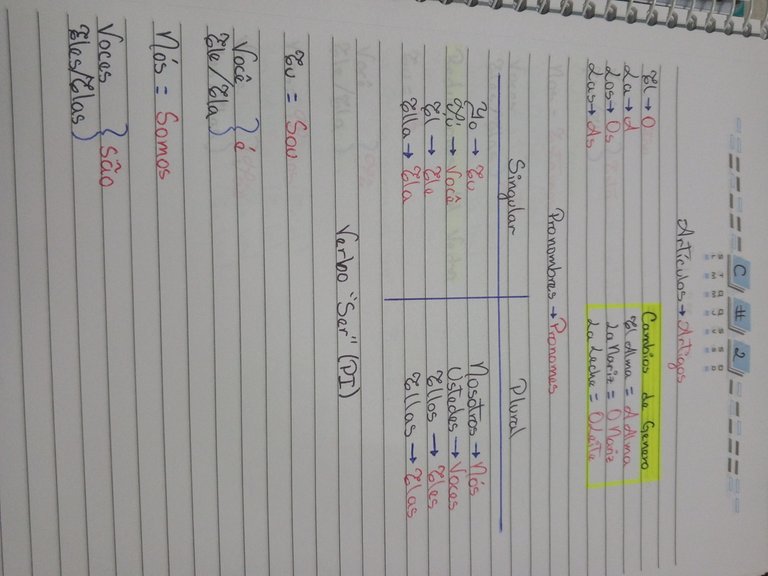 C # 2
S T Q Q S S D
L M M J V S D
Artículos → Artigos
El → O
La → A
Los → Os
Las → As
Cambios de Genero
El Alma = A Alma
La Nariz = O Nariz
La Leche = O Leite
Pronombres → Pronomes
Singular
Plural
Yo → Eu
Tú → Você
El → Ele
Ella → Ela
Nosotros → Nós
Ustedes → Voces
Ellos → Eles
Ellas → Elas
Verbo "Ser" (PI)
Eu = Sou
Você
Ele/Ela } é
Nós = Somos
Voces
Eles/Elas } São